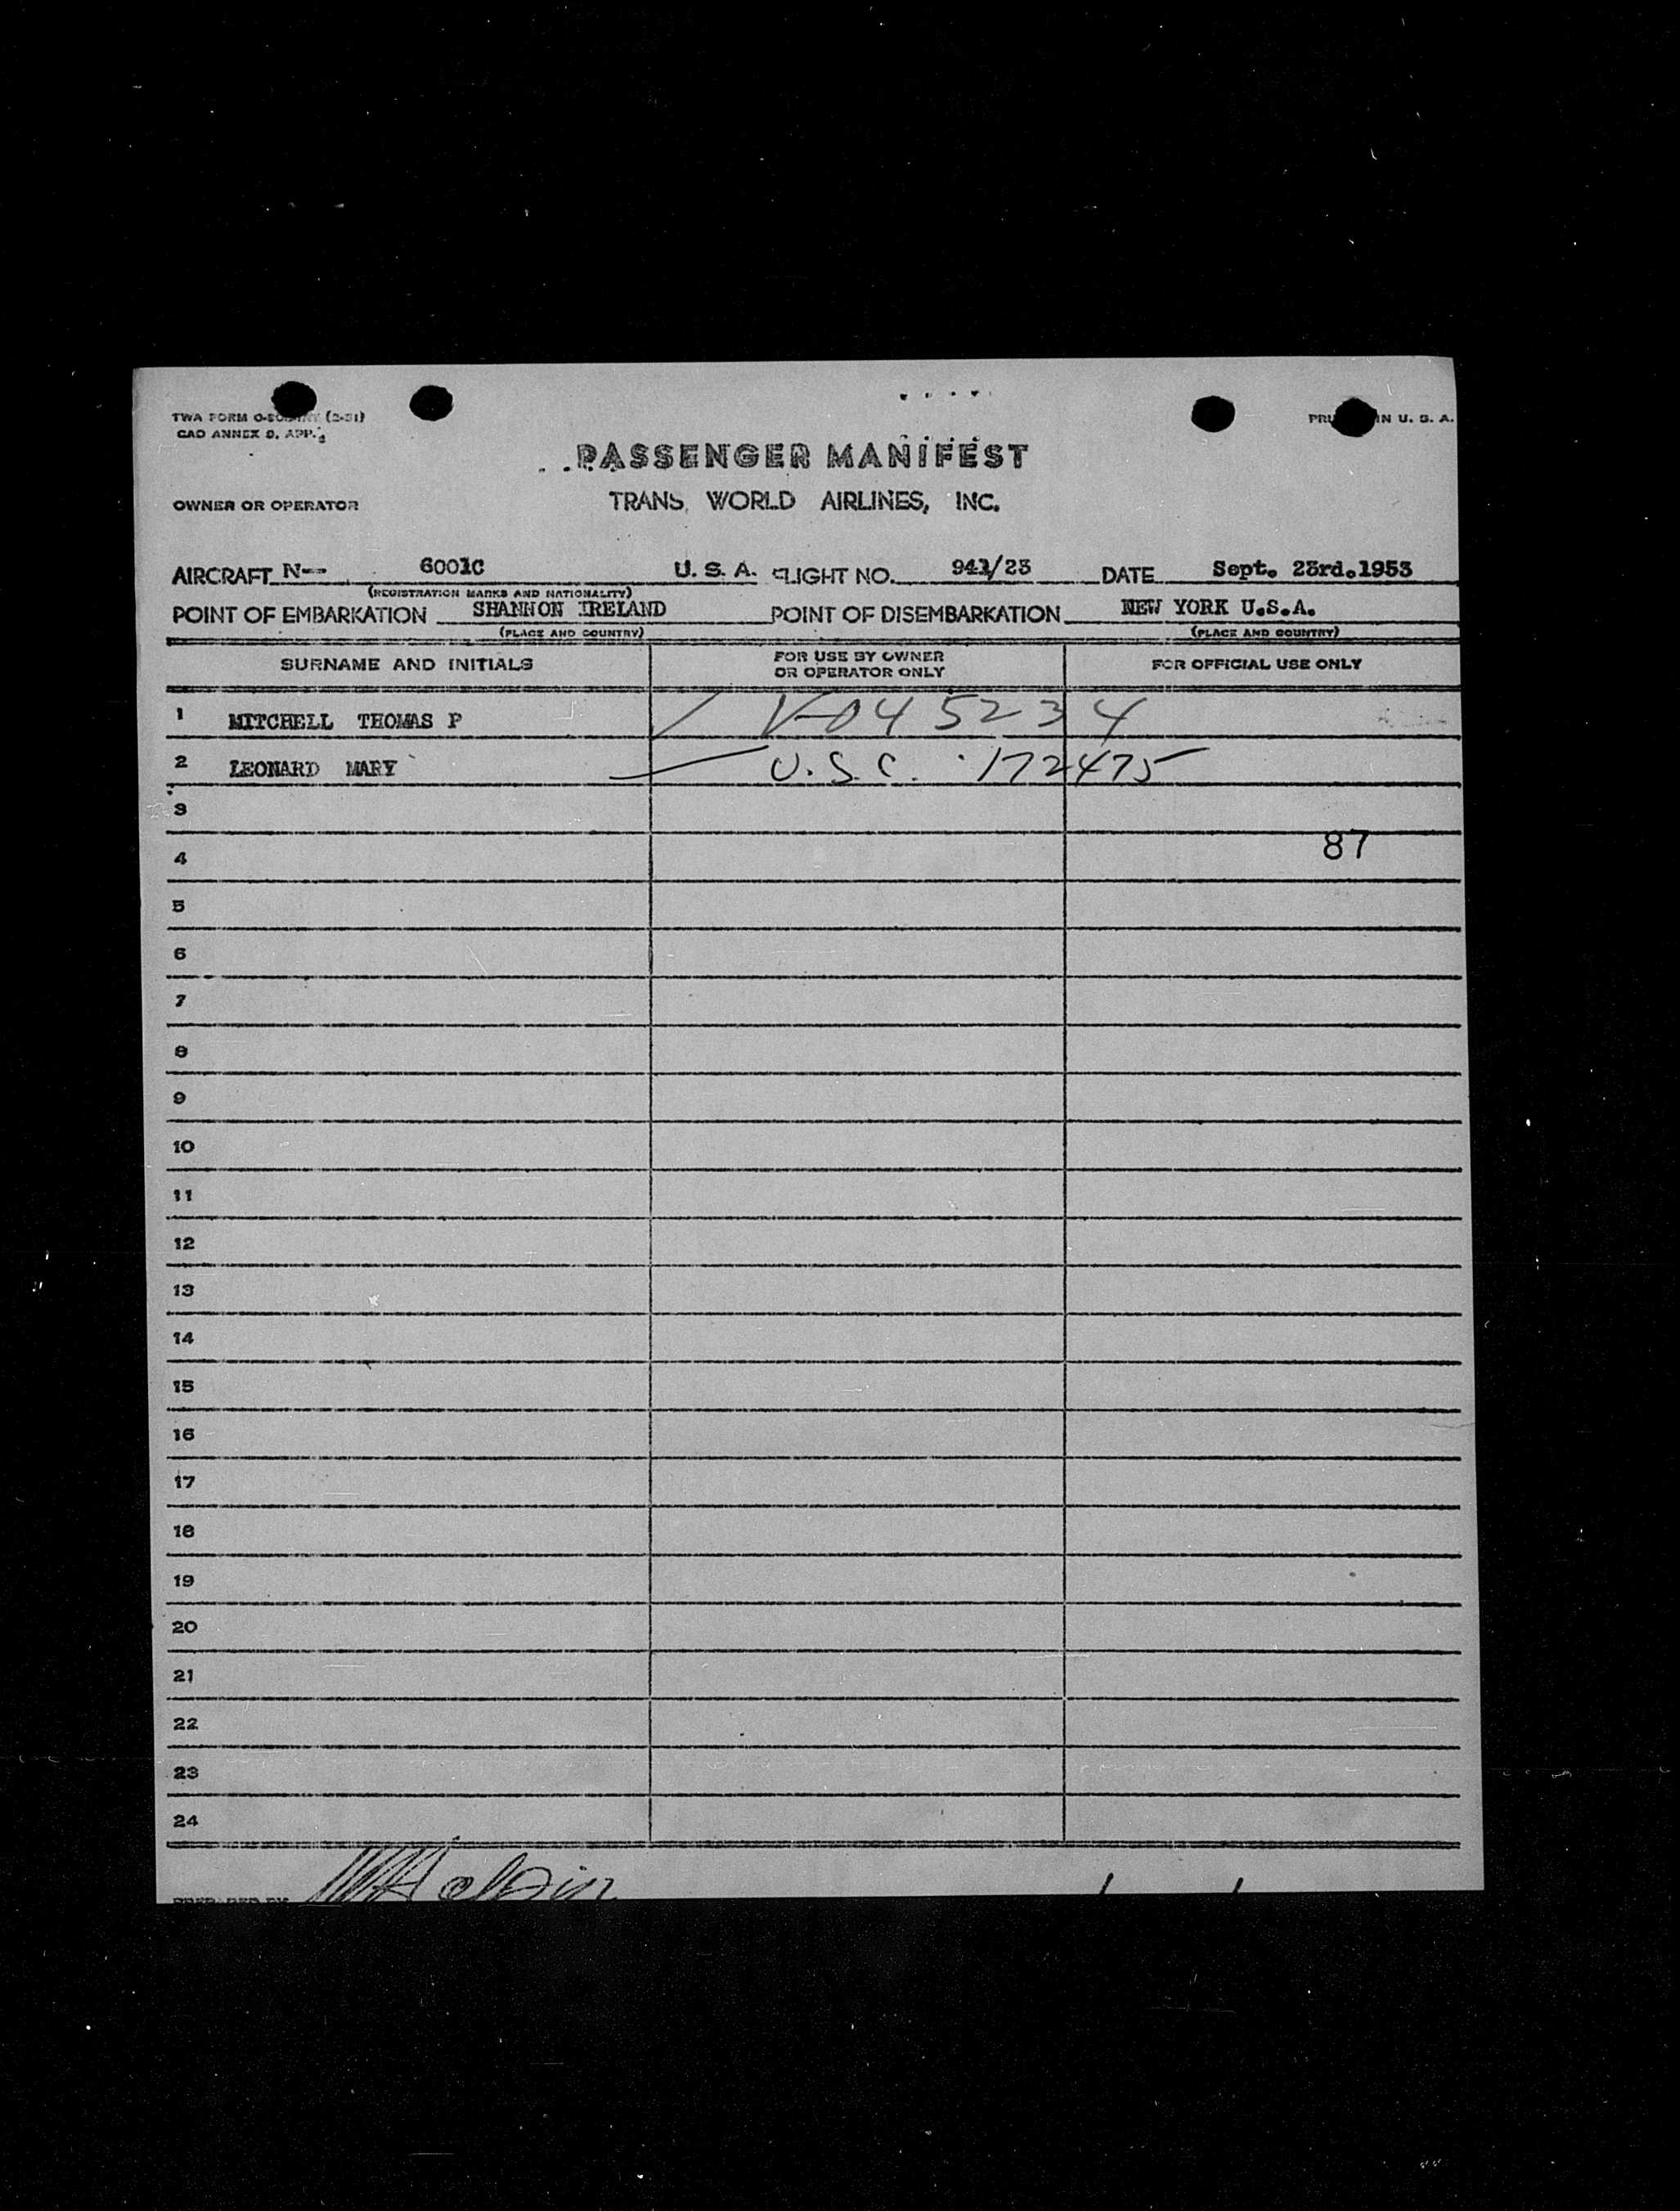 TWA FORM (2-51) PRINTED IN U. S. A.
CAO ANNEX 9, APP.
PASSENGER MANIFEST
OWNER OR OPERATOR TRANS WORLD AIRLINES, INC.
AIRCRAFT N-- 6001C U. S. A. FLIGHT NO. 941/23 DATE Sept. 23rd.1953
(REGISTRATION MARKS AND NATIONALITY)
POINT OF EMBARKATION SHANNON IRELAND POINT OF DISEMBARKATION NEW YORK U.S.A.
(PLACE AND COUNTRY) (PLACE AND COUNTRY)
SURNAME AND INITIALS FOR USE BY OWNER OR OPERATOR ONLY FOR OFFICIAL USE ONLY
1 MITCHELL THOMAS P V-045234
2 LEONARD MARY U.S.C. 172475
3
4 87
5
6
7
8
9
10
11
12
13
14
15
16
17
18
19
20
21
22
23
24
PREPARED BY